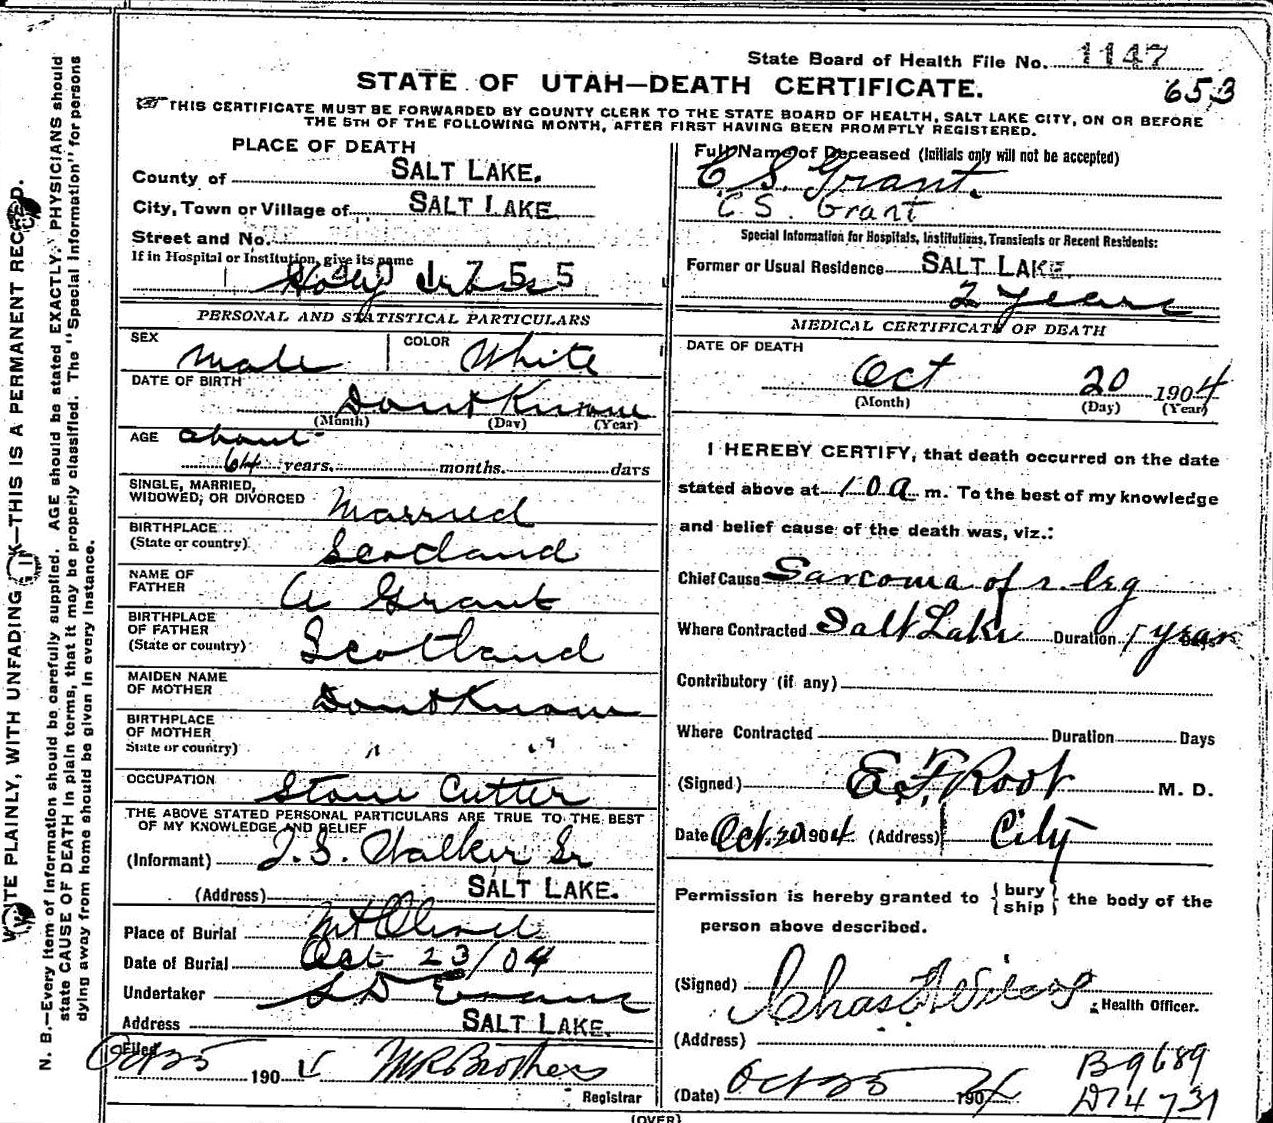 State Board of Health File No. 1147
653
STATE OF UTAH—DEATH CERTIFICATE.
THIS CERTIFICATE MUST BE FORWARDED BY COUNTY CLERK TO THE STATE BOARD OF HEALTH, SALT LAKE CITY, ON OR BEFORE
THE 5TH OF THE FOLLOWING MONTH, AFTER FIRST HAVING BEEN PROMPTLY REGISTERED.
PLACE OF DEATH
County of SALT LAKE.
City, Town or Village of SALT LAKE
Street and No.
If in Hospital or Institution, give its name
Holy
PERSONAL AND STATISTICAL PARTICULARS
SEX Male COLOR White
DATE OF BIRTH Dont Know
(Month) (Day) (Year)
AGE about
64 years, months. days
SINGLE, MARRIED,
WIDOWED, OR DIVORCED Married
BIRTHPLACE
(State or country) Scotland
NAME OF
FATHER A Grant
BIRTHPLACE
OF FATHER
(State or country) Scotland
MAIDEN NAME
OF MOTHER Dont Know
BIRTHPLACE
OF MOTHER
State or country) " "
OCCUPATION Stone Cutter
THE ABOVE STATED PERSONAL PARTICULARS ARE TRUE TO THE BEST
OF MY KNOWLEDGE AND BELIEF
(Informant) J. S. Walker Sr
(Address) SALT LAKE.
Place of Burial Mt Olivet
Date of Burial Oct 23/04
Undertaker S D Evans
Address SALT LAKE.
Filed Oct 25 1904 M R Brothers
Registrar
Full Name of Deceased (Initials only will not be accepted)
C S. Grant.
C. S. Grant
Special Information for Hospitals, Institutions, Transients or Recent Residents:
Former or Usual Residence SALT LAKE
2 years
MEDICAL CERTIFICATE OF DEATH
DATE OF DEATH
Oct 20 1904
(Month) (Day) (Year)
I HEREBY CERTIFY, that death occurred on the date
stated above at 10 a m. To the best of my knowledge
and belief cause of the death was, viz.:
Chief Cause Sarcoma of r. leg
Where Contracted Salt Lake Duration 1 year Days
Contributory (if any)
Where Contracted Duration Days
(Signed) E. F. Root M. D.
Date Oct. 20 1904 (Address) City
Permission is hereby granted to { bury ship } the body of the
person above described.
(Signed) Chas F Wilcox Health Officer.
(Address)
(Date) Oct 25 1904
B9689
D14731
(OVER)
WRITE PLAINLY, WITH UNFADING INK—THIS IS A PERMANENT RECORD.
N. B.—Every item of information should be carefully supplied. AGE should be stated EXACTLY. PHYSICIANS should
state CAUSE OF DEATH in plain terms, that it may be properly classified. The "Special Information" for persons
dying away from home should be given in every instance.